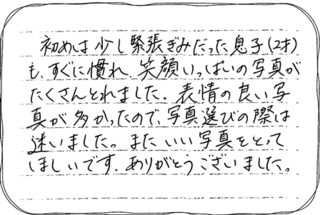 初めは少し緊張ぎみだった息子(2才)
も、すぐに慣れ、笑顔いっぱいの写真が
たくさんとれました。表情の良い写
真が多かったので、写真選びの際は
迷いました。またいい写真をとって
ほしいです。ありがとうございました。